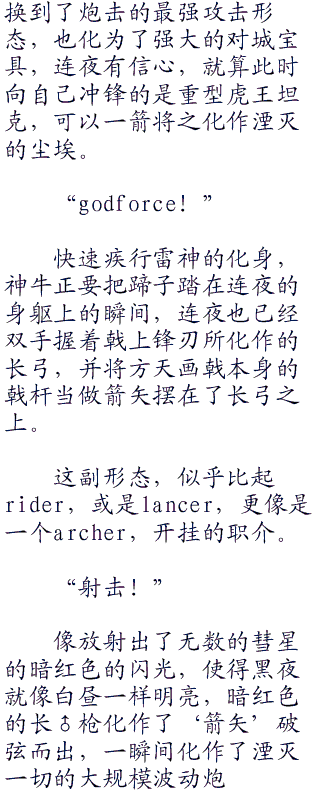 换到了炮击的最强攻击形
态，也化为了强大的对城宝
具，连夜有信心，就算此时
向自己冲锋的是重型虎王坦
克，可以一箭将之化作湮灭
的尘埃。
“godforce！”
快速疾行雷神的化身，
神牛正要把蹄子踏在连夜的
身躯上的瞬间，连夜也已经
双手握着戟上锋刃所化作的
长弓，并将方天画戟本身的
戟杆当做箭矢摆在了长弓之
上。
这副形态，似乎比起
rider，或是lancer，更像是
一个archer，开挂的职介。
“射击！”
像放射出了无数的彗星
的暗红色的闪光，使得黑夜
就像白昼一样明亮，暗红色
的长♂枪化作了‘箭矢’破
弦而出，一瞬间化作了湮灭
一切的大规模波动炮